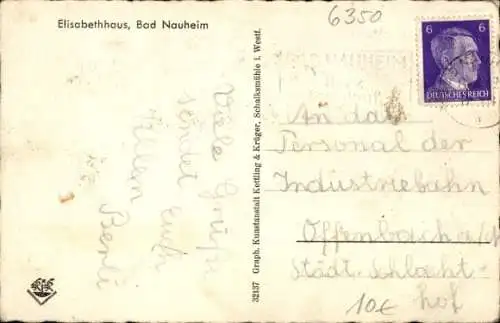 Elisabethhaus, Bad Nauheim
6350
6 6
DEUTSCHES REICH
Viele Grüße
sendet Euch
Allen
32137 Graph. Kunstanstalt Kettling & Krüger, Schalksmühle i. Westf.
An das
Personal der
Industriebahn
Offenbach a/M
Städt. Schlacht-
hof
10€